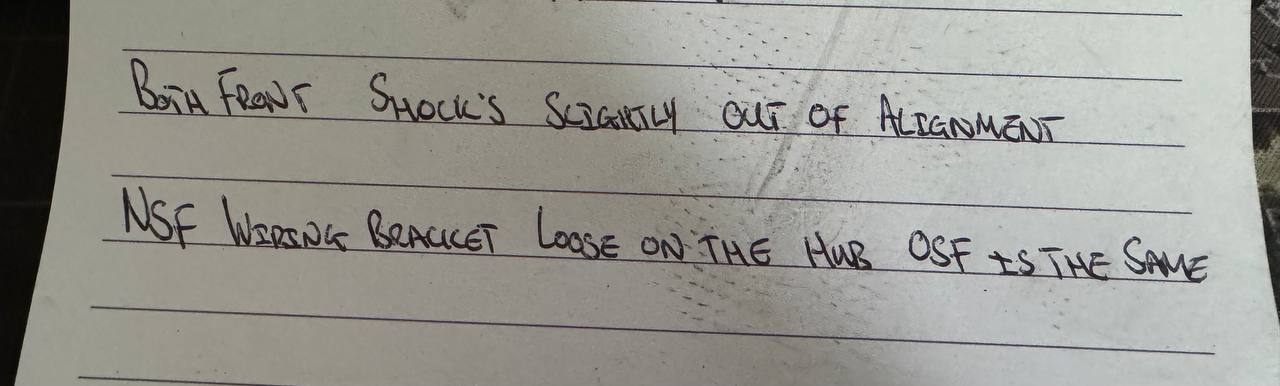 BOTH FRONT SHOCK'S SLIGHTLY OUT OF ALIGNMENT
NSF WIRING BRACKET LOOSE ON THE HUB OSF IS THE SAME